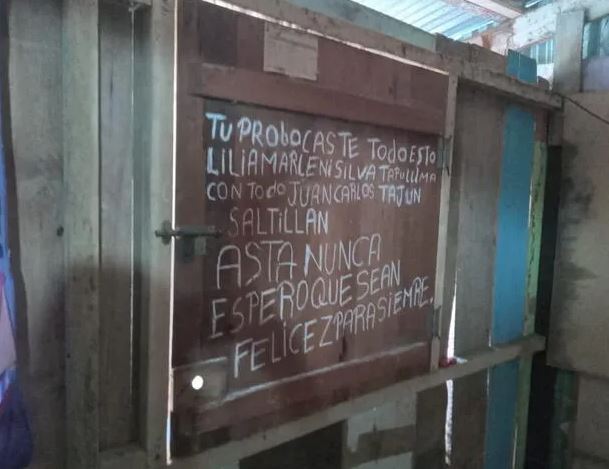 TU PROBOCASTE TODO ESTO
LILIA MARLENI SILVA TAPULLIMA
CON TODO JUAN CARLOS TAJUN
SALTILLAN
ASTA NUNCA
ESPERO QUE SEAN
FELICEZ PARA SIEMPRE.